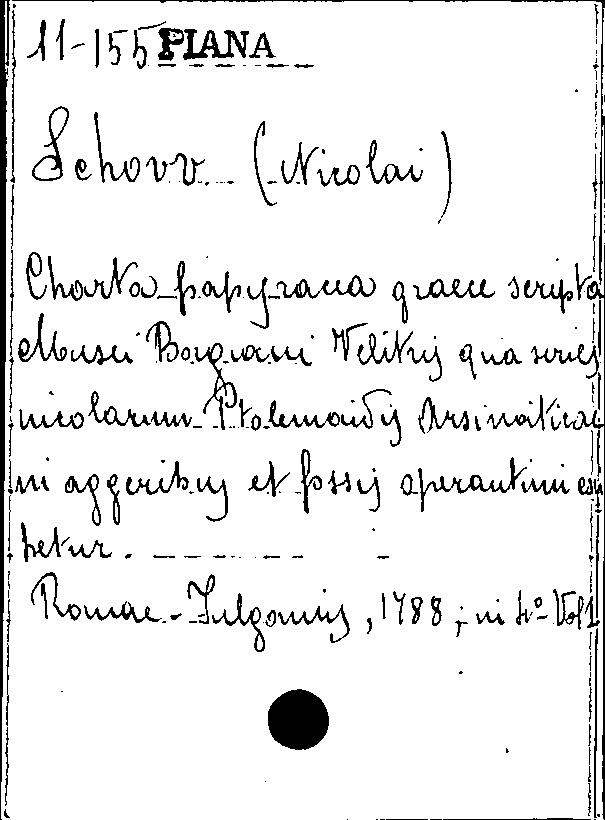 11-155 PIANA
Schovv (Nicolai)
Charta papyracea graece scripta
Musei Borgiani Velitris qua series
incolarum Ptolemaidis Arsinoiticae
in aggeribus et fossis operantium exhi
betur.
Romae - Fulgonius, 1788; in 4º Vol 1